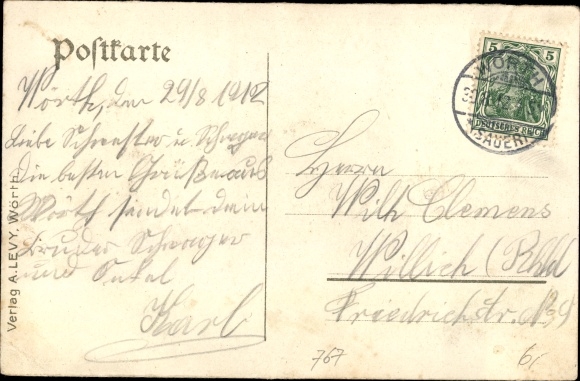 Postkarte
Wörth, den 29/8 1912
Liebe Schwester u. Schwager
Die besten Grüße aus
Wörth sendet dein
Bruder Schwager
und Onkel
Karl
Verlag A. LEVY, Wörth
5 5
WÖRTH
(SAUER)
DEUTSCHES REICH
Herrn
Wilh Clemens
Willich (Rhld
Friedrichstr. No
767